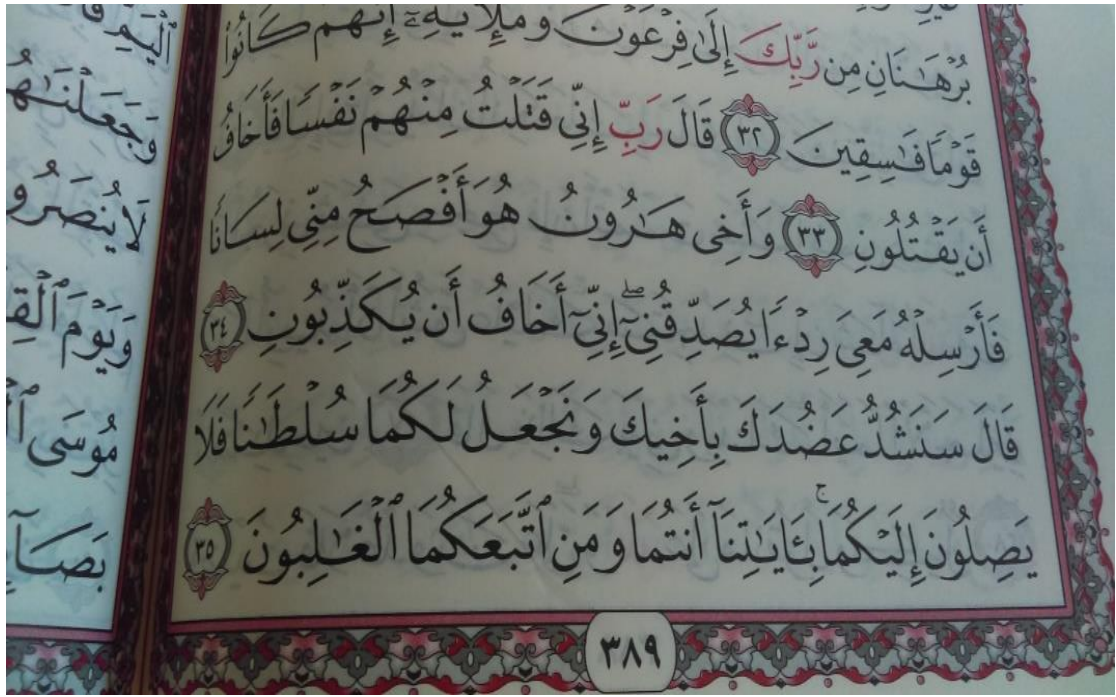 بُرۡهَٰنَانِ مِن رَّبِّكَ إِلَىٰ فِرۡعَوۡنَ وَمَلَإِيْهِۦٓ إِنَّهُمۡ كَانُواْ
قَوۡمٗا فَٰسِقِينَ ٣٢ قَالَ رَبِّ إِنِّي قَتَلۡتُ مِنۡهُمۡ نَفۡسٗا فَأَخَافُ
أَن يَقۡتُلُونِ ٣٣ وَأَخِي هَٰرُونُ هُوَ أَفۡصَحُ مِنِّي لِسَانٗا
فَأَرۡسِلۡهُ مَعِيَ رِدۡءٗا يُصَدِّقُنِيٓۖ إِنِّيٓ أَخَافُ أَن يُكَذِّبُونِ ٣٤
قَالَ سَنَشُدُّ عَضُدَكَ بِأَخِيكَ وَنَجۡعَلُ لَكُمَا سُلۡطَٰنٗا فَلَا
يَصِلُونَ إِلَيۡكُمَا بِـَٔايَٰتِنَآۚ أَنتُمَا وَمَنِ ٱتَّبَعَكُمَا ٱلۡغَٰلِبُونَ ٣٥
٣٨٩
وَجَعَلۡنَٰهُ
لَا يُنصَرُو
وَيَوۡمَ ٱلۡقِ
مُوسَى ٱل
بَصَآ